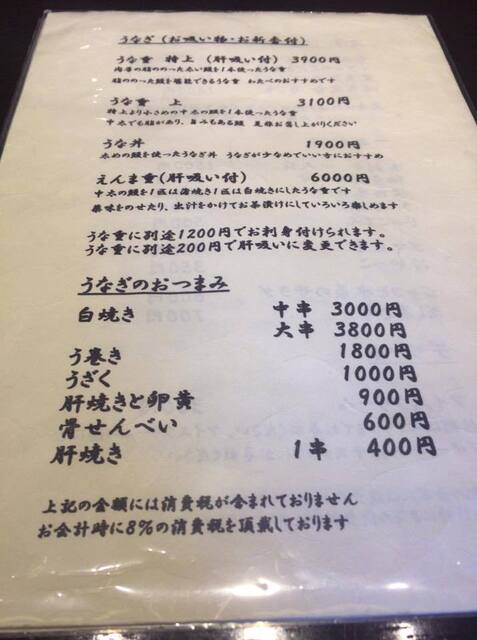 うなぎ（お吸い物・お新香付）
うな重 特上（肝吸い付） 3900円
肉厚の脂ののった太い鰻を1本使ったうな重
脂ののった鰻を堪能できるうな重 わたべのおすすめです
うな重 上 3100円
特上より小さめの中太の鰻を1本使ったうな重
中太でも脂があり、旨みもある鰻 是非お召し上がりください
うな丼 1900円
太めの鰻を使ったうな丼 うなぎが少なめでいい方におすすめ
えんま重（肝吸い付） 6000円
中太の鰻を1匹は蒲焼き1匹は白焼きにしたうな重です
薬味をのせたり、出汁をかけてお茶漬けにしていろいろ楽しめます
うな重に別途1200円でお刺身付けられます。
うな重に別途200円で肝吸いに変更できます。
うなぎのおつまみ
白焼き 中串 3000円
大串 3800円
う巻き 1800円
うざく 1000円
肝焼きと卵黄 900円
骨せんべい 600円
肝焼き 1串 400円
上記の金額には消費税が含まれておりません
お会計時に8%の消費税を頂戴しております